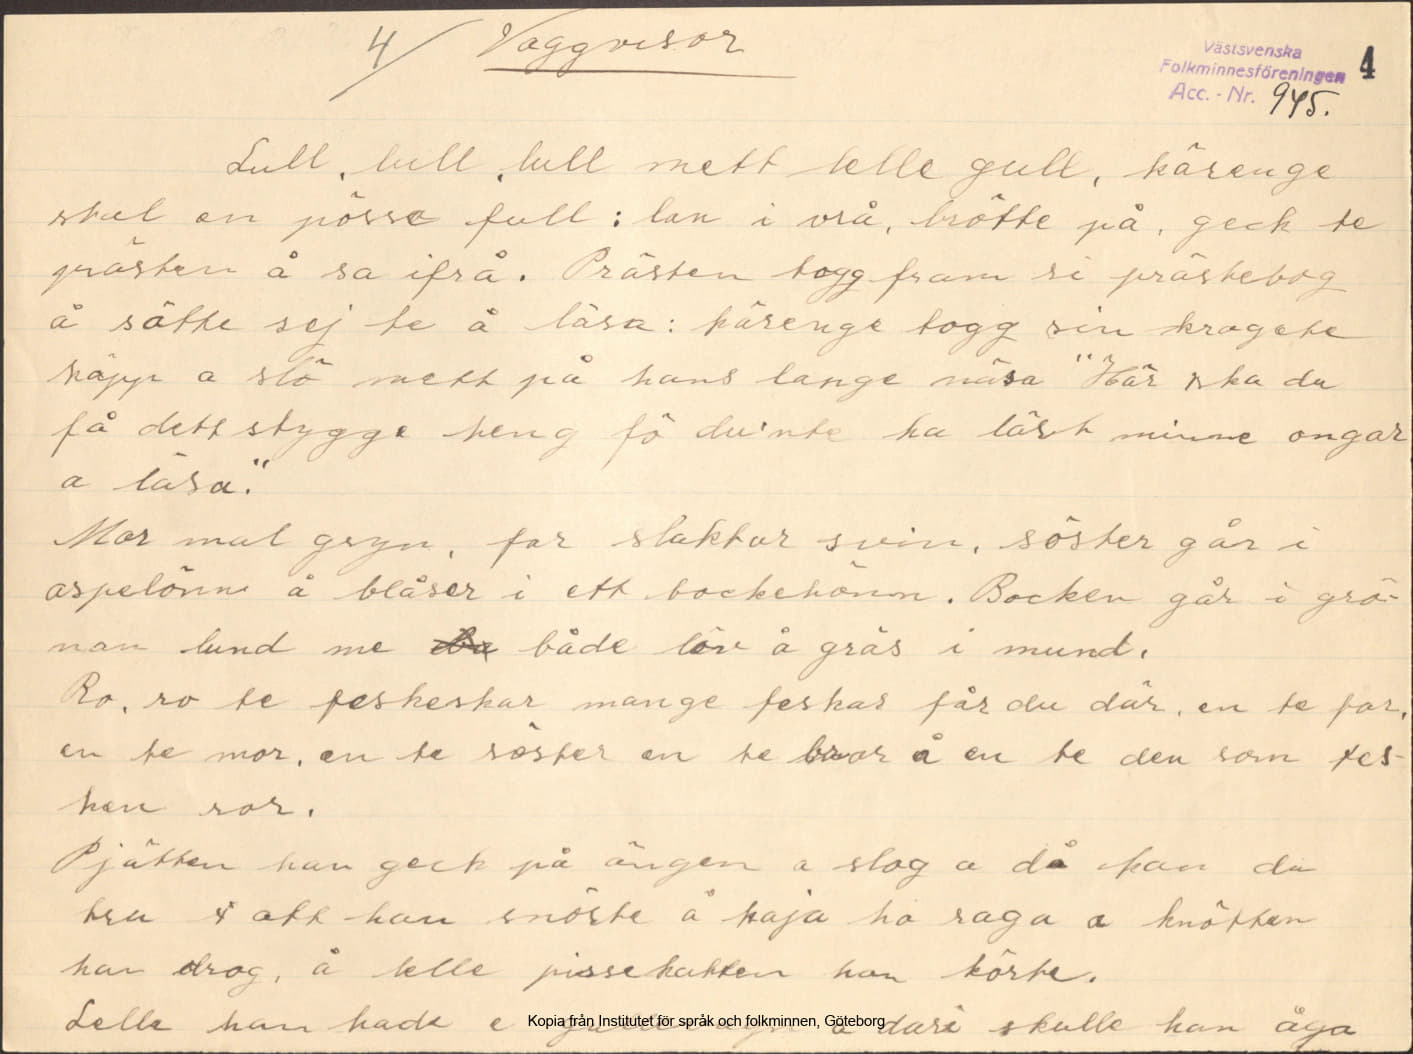 4/ Vaggvisor
Västsvenska
Folkminnesföreningen
Acc. - Nr. 945.
4
Lull, lull, lull mett lelle gull, kärenge
stal en pösse full: lan i vrå, brötte på, geck te
prästen å sa ifrå. Prästen togg fram si prästebog
å sätte sej te å läsa: kärenge togg sin krogete
käpp a slö mett på hans lange näsa "Här ska du
få dett stygge heng fö du'nte ha lärt minne ongar
a läsa."
Mor mal gryn, far slaktar svin, söster går i
aspelönn å blåser i ett bockehönn. Bocken går i grö-
nan lund me både löv å gräs i mund.
Ro, ro te feskeskar mange feskar får du där, en te far,
en te mor, en te söster en te bror å en te den som fes-
ken ror.
Pjätten han geck på ängen a slog a då kan du
tru att han snörte å kaja ho raga a knötten
han drog, å lelle pissekatten han körte.
Lelle han hade e å däri skulle han åga
Kopia från Institutet för språk och folkminnen, Göteborg